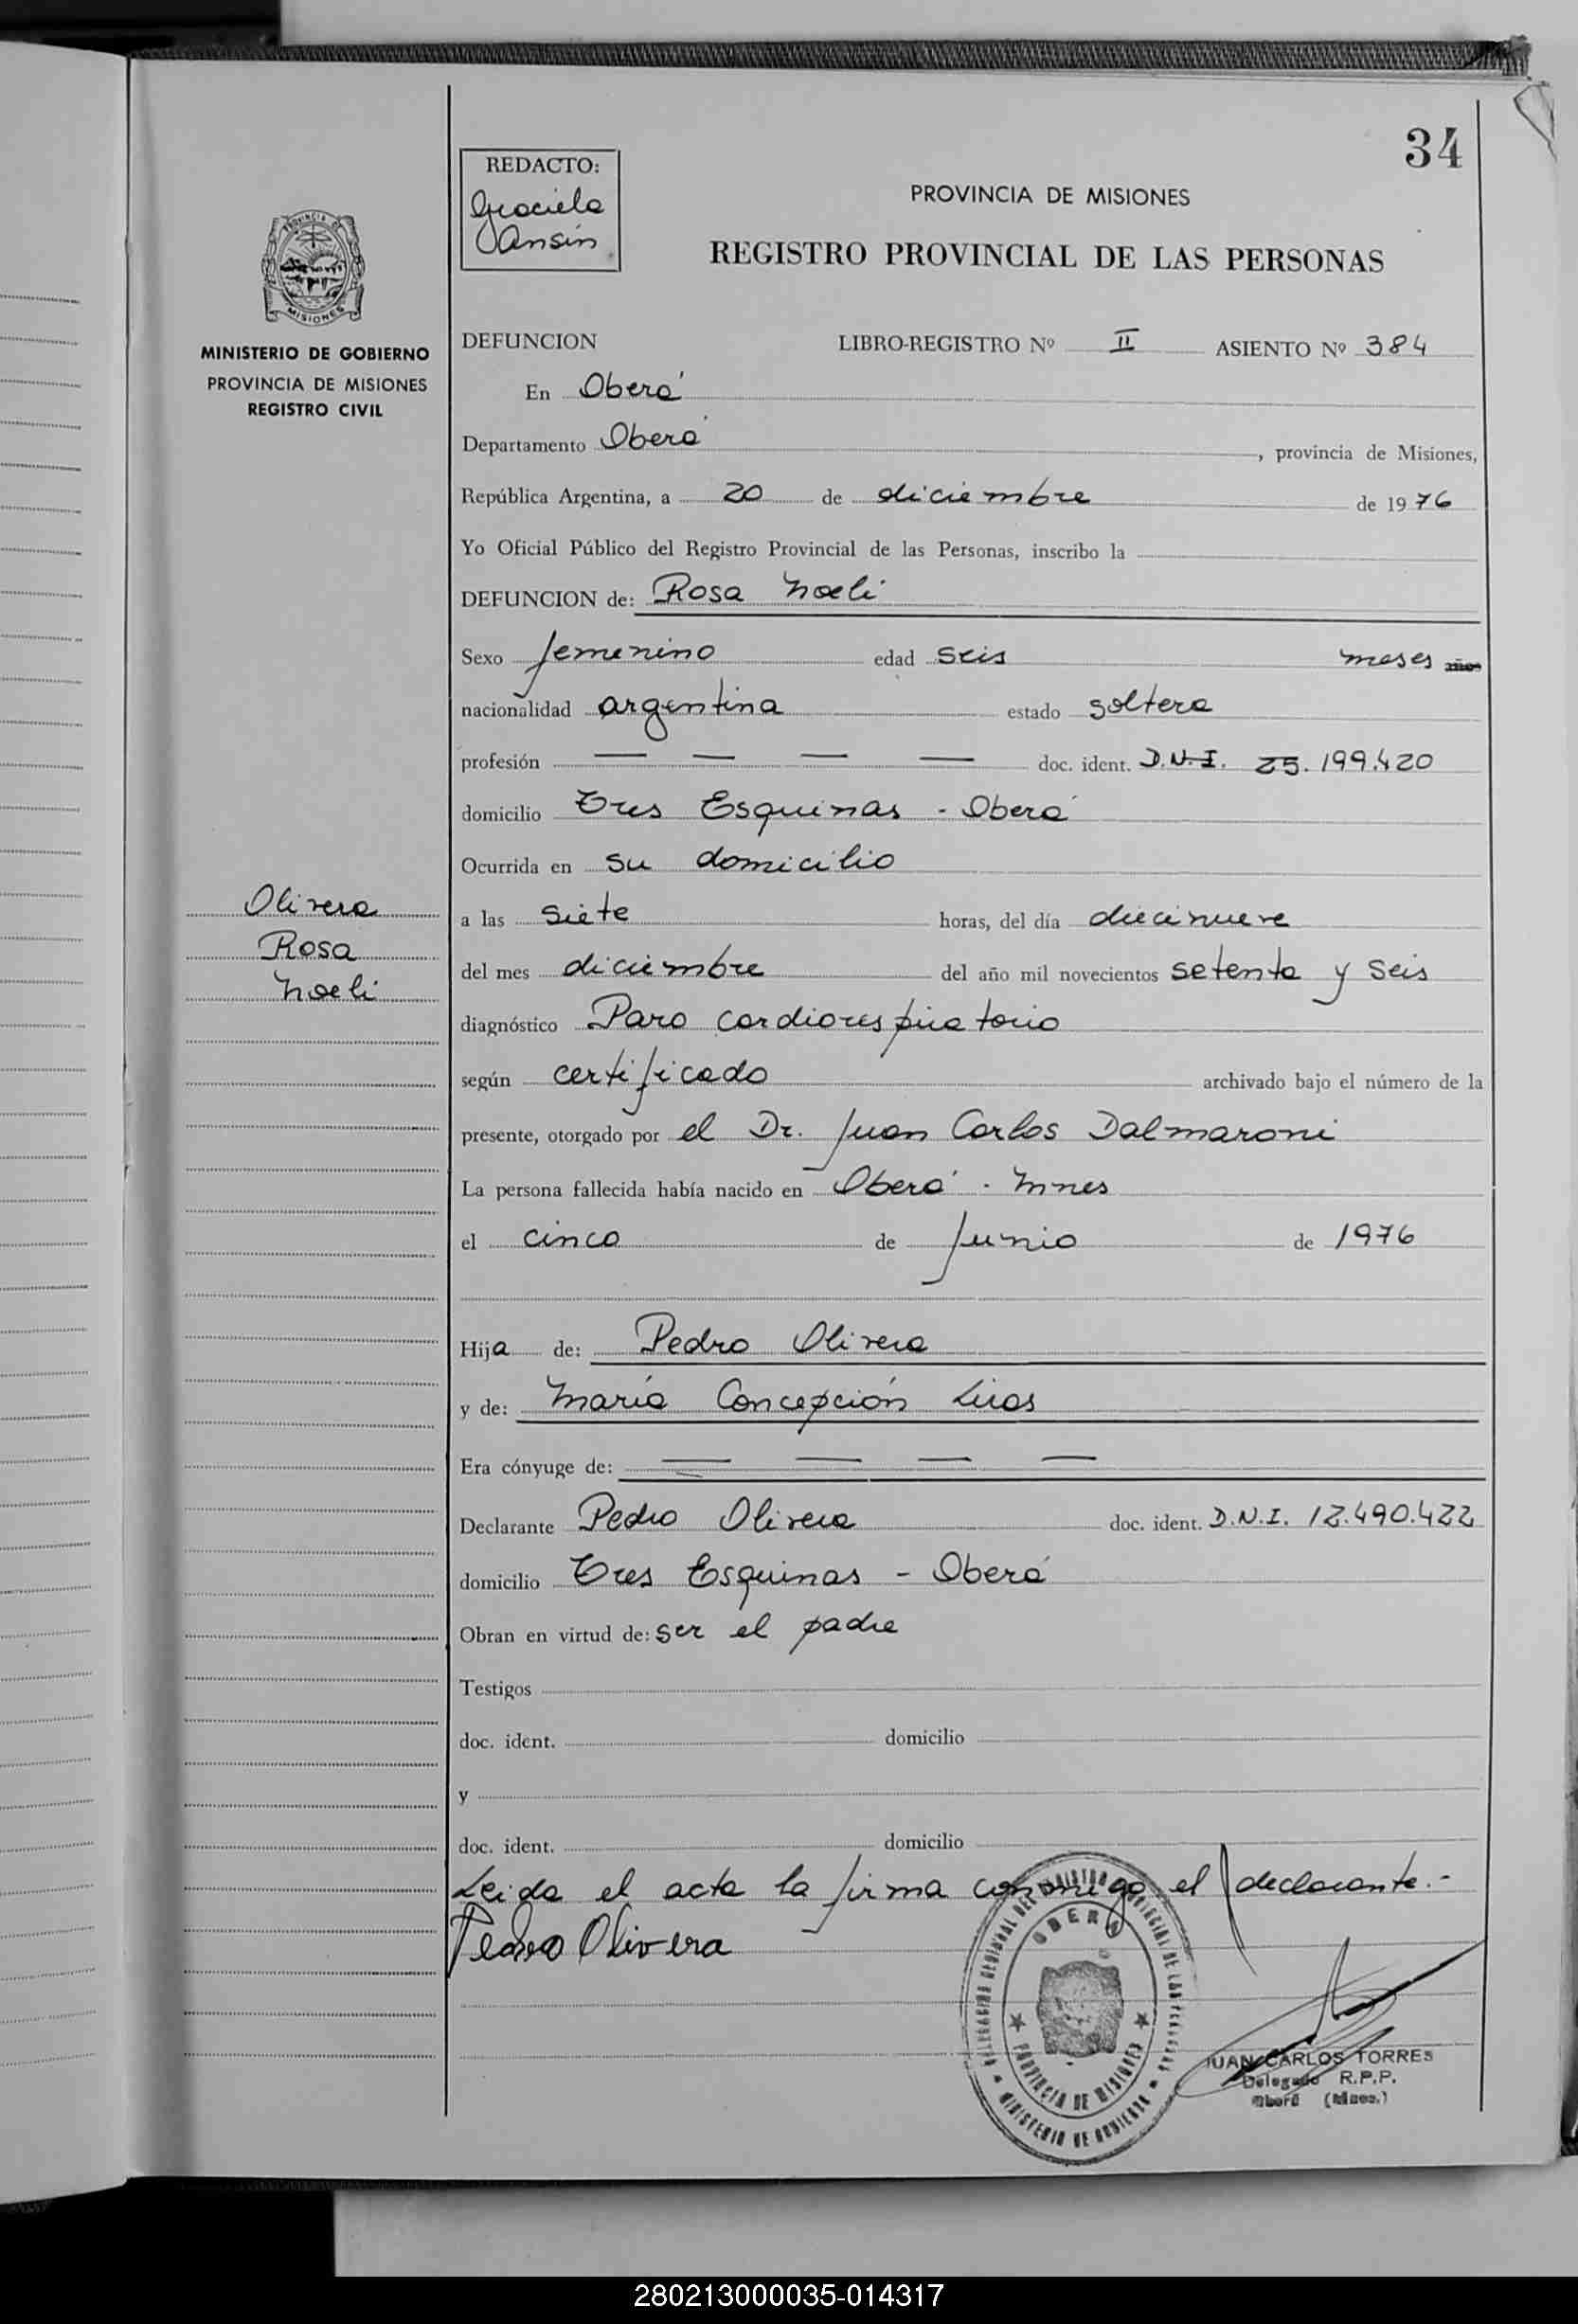 34
REDACTO:
Graciela
Ansin
PROVINCIA DE MISIONES
REGISTRO PROVINCIAL DE LAS PERSONAS
PROVINCIA DE
MISIONES
MINISTERIO DE GOBIERNO
PROVINCIA DE MISIONES
REGISTRO CIVIL
DEFUNCION LIBRO-REGISTRO Nº II ASIENTO Nº 384
En Oberá
Departamento Oberá, provincia de Misiones,
República Argentina, a 20 de diciembre de 1976
Yo Oficial Público del Registro Provincial de las Personas, inscribo la
DEFUNCION de: Rosa Noeli
Sexo femenino edad seis meses años
nacionalidad argentina estado soltera
profesión — — — — doc. ident. D.N.I. 25.199.420
domicilio Tres Esquinas - Oberá
Ocurrida en su domicilio
Olivera
Rosa
Noeli
a las siete horas, del día diecinueve
del mes diciembre del año mil novecientos setenta y seis
diagnóstico Paro cardiorespiratorio
según certificado archivado bajo el número de la
presente, otorgado por el Dr. Juan Carlos Dalmaroni
La persona fallecida había nacido en Oberá - Mnes
el cinco de Junio de 1976
Hija de: Pedro Olivera
y de: María Concepción Liras
Era cónyuge de: — — — —
Declarante Pedro Olivera doc. ident. D.N.I. 12.490.422
domicilio Tres Esquinas - Oberá
Obran en virtud de: ser el padre
Testigos
doc. ident. domicilio
y
doc. ident. domicilio
Leida el acta la firma conmigo el declarante.-
Pedro Olivera
DELEGACION REGIONAL DEL REGISTRO PROVINCIAL DE LAS PERSONAS
OBERA
PROVINCIA DE MISIONES
MINISTERIO DE GOBIERNO
JUAN CARLOS TORRES
Delegado R.P.P.
Oberá (Mnes.)
280213000035-014317